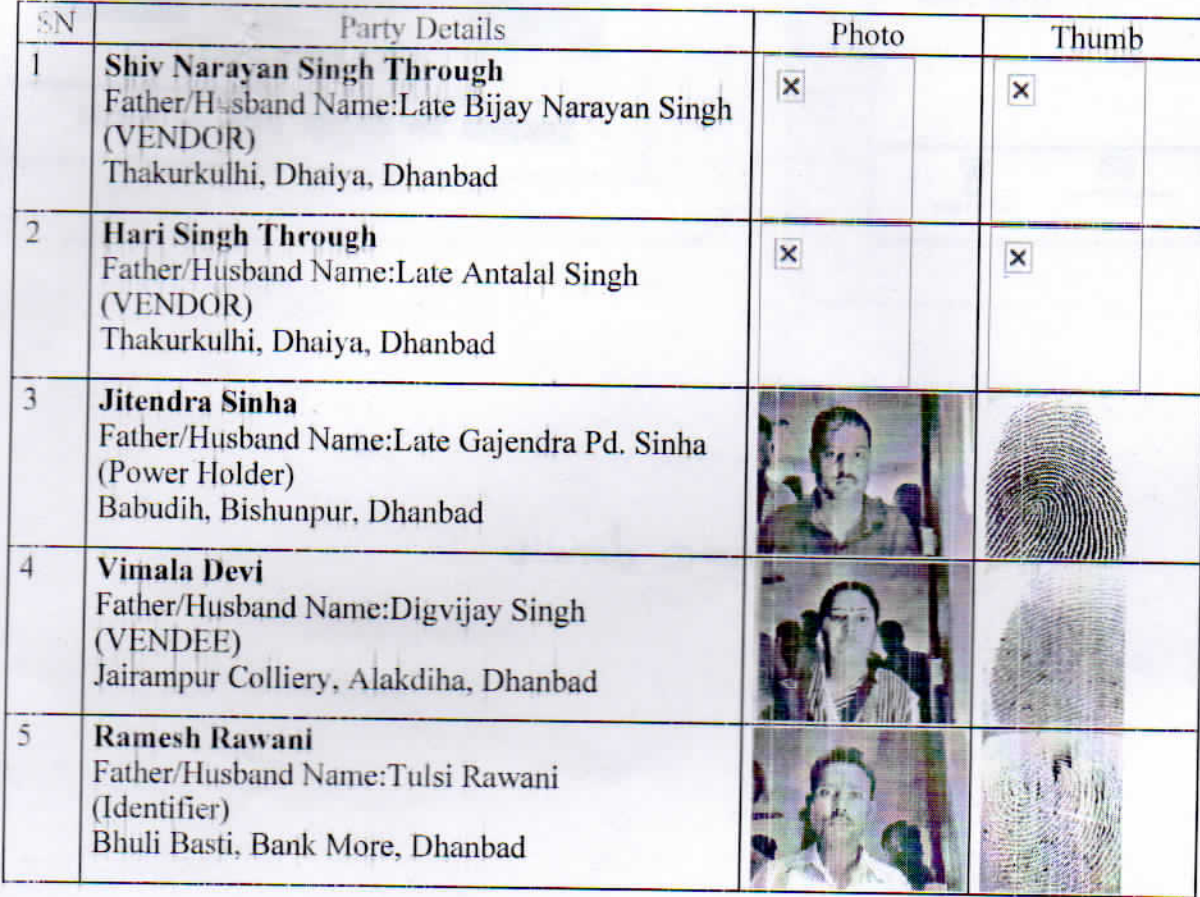 SN Party Details Photo Thumb
1 Shiv Narayan Singh Through
Father/Husband Name:Late Bijay Narayan Singh
(VENDOR)
Thakurkulhi, Dhaiya, Dhanbad
2 Hari Singh Through
Father/Husband Name:Late Antalal Singh
(VENDOR)
Thakurkulhi, Dhaiya, Dhanbad
3 Jitendra Sinha
Father/Husband Name:Late Gajendra Pd. Sinha
(Power Holder)
Babudih, Bishunpur, Dhanbad
4 Vimala Devi
Father/Husband Name:Digvijay Singh
(VENDEE)
Jairampur Colliery, Alakdiha, Dhanbad
5 Ramesh Rawani
Father/Husband Name:Tulsi Rawani
(Identifier)
Bhuli Basti, Bank More, Dhanbad